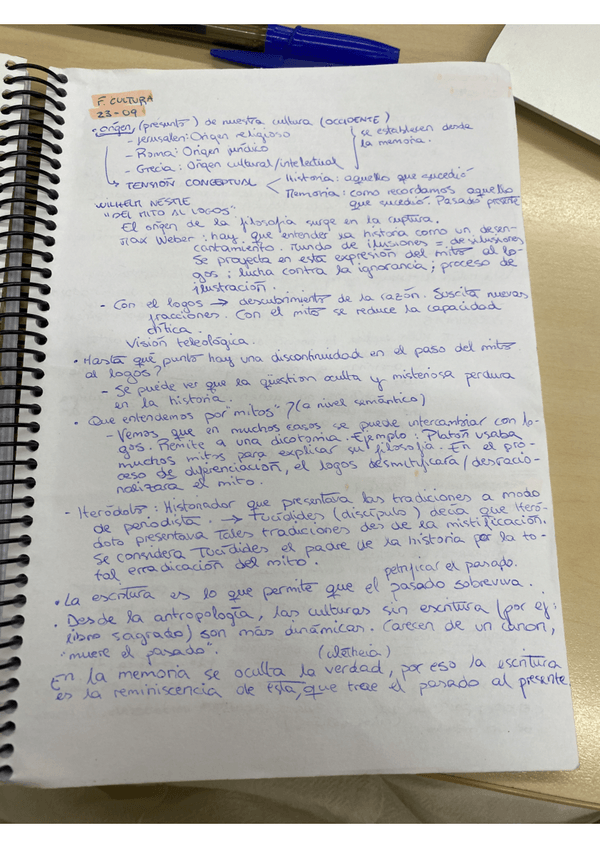 F. CULTURA
23-09
• Origen, (presente) de nuestra cultura (OCCIDENTE)
- Jerusalén: Origen religioso
- Roma: Origen jurídico
- Grecia: Origen cultural/intelectual
se establecen desde
la memoria.
→ TENSIÓN CONCEPTUAL < Historia: aquello que sucedió
Memoria: como recordamos aquello
que sucedió. Pasado presente
WILHELM NESTLE
"DEL MITO AL LOGOS"
El origen de la filosofía surge en la ruptura.
Max Weber: hay que entender la historia como un desen-
cantamiento. Mundo de ilusiones = desilusiones
Se proyecta en esta expresión del mito al lo-
gos; lucha contra la ignorancia; proceso de
ilustración.
- Con el logos → descubrimiento de la razón. Suscita nuevas
fracciones. Con el mito se reduce la capacidad
crítica.
Visión teleológica.
• Hasta qué punto hay una discontinuidad en el paso del mito
al logos?
- Se puede ver que la qüestion oculta y misteriosa perdura
en la historia.
• Que entendemos por "mitos"? (a nivel semántico)
- Vemos que en muchos casos se puede intercambiar con lo-
gos. Remite a una dicotomia. Ejemplo: Platón usaba
muchos mitos para explicar su filosofía. En el pro-
ceso de diferenciación, el logos desmitificara/desracio-
nalizara el mito.
- Heródoto: Historiador que presentava las tradiciones a modo
de periodista. → Tucídides (discípulo) decía que Heró-
doto presentava Tales tradiciones des de la mistificación.
Se considera Tucídides el padre de la historia por la to-
tal erradicación del mito.
petrificar el pasado.
• La escritura es lo que permite que el pasado sobreviva.
• Desde la antropología, las culturas sin escritura (por ej:
libro sagrado) son más dinámicas. Carecen de un canon,
"muere el pasado".
(aletheia)
En la memoria se oculta la verdad, por eso la escritura
es la reminiscencia de esta, que trae el pasado al presente